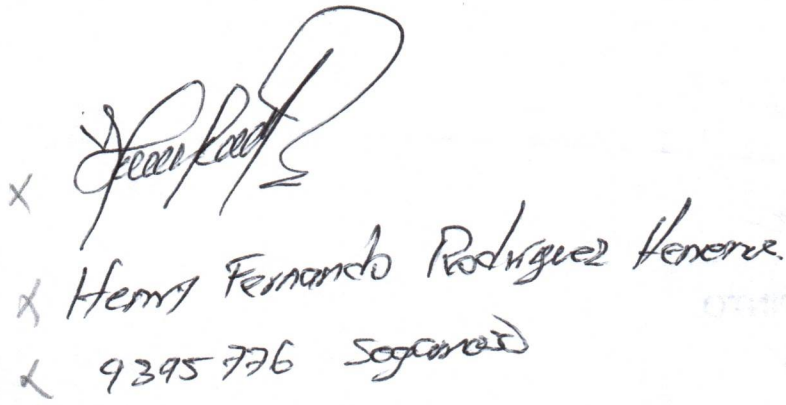 x
x Henry Fernando Rodriguez
x 9395776 Sogamoso